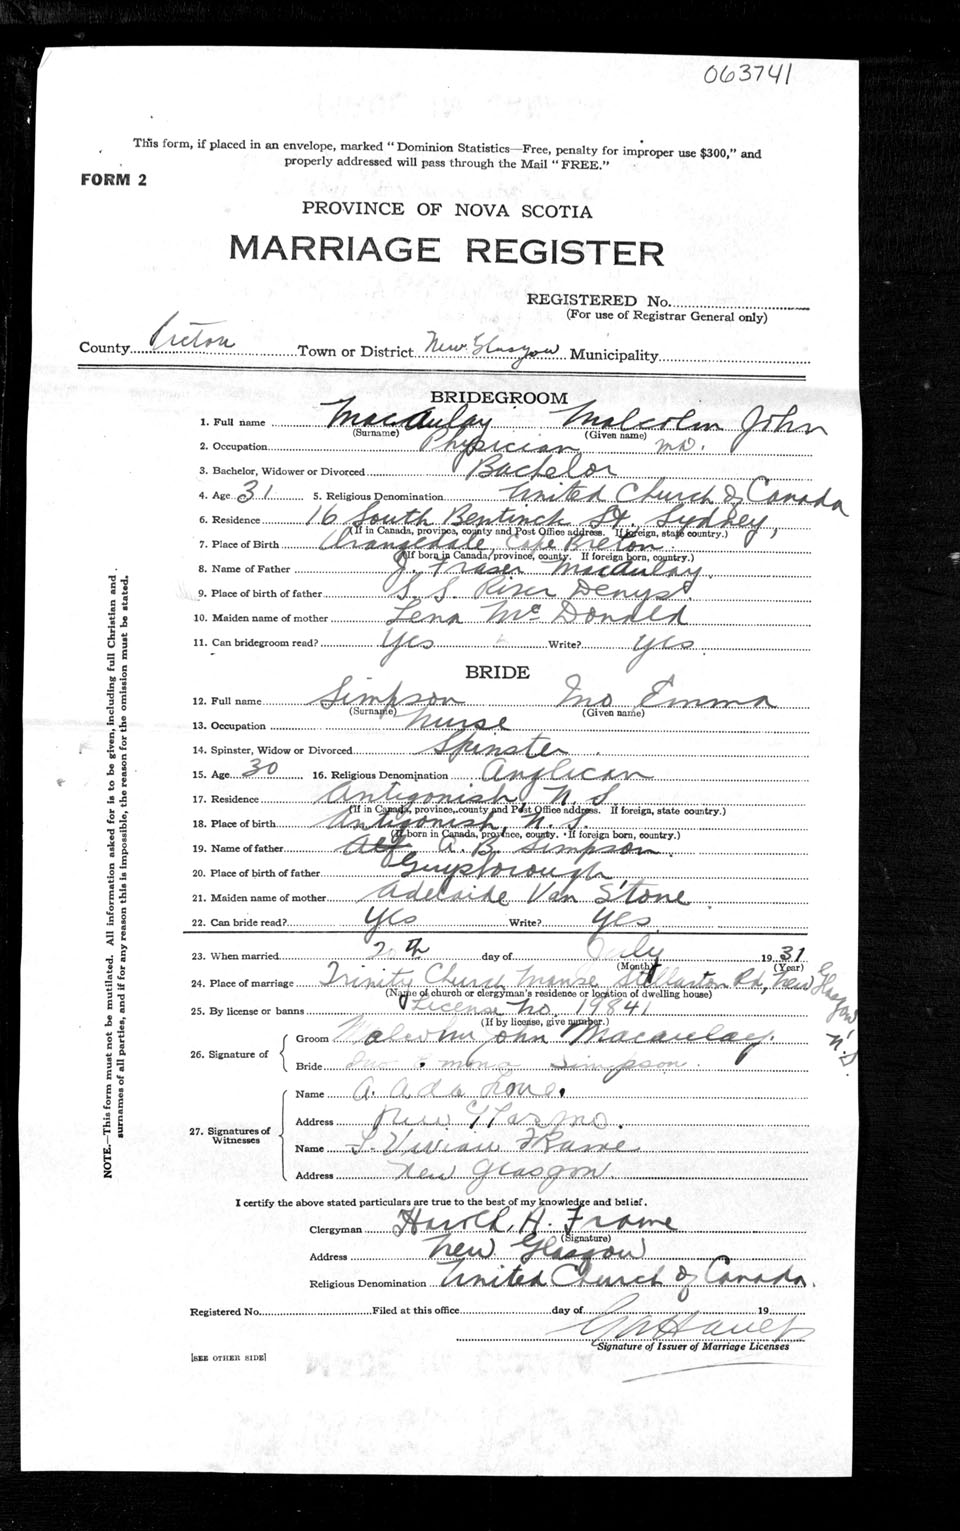 063741
This form, if placed in an envelope, marked "Dominion Statistics—Free, penalty for improper use $300," and
properly addressed will pass through the Mail "FREE."
FORM 2
PROVINCE OF NOVA SCOTIA
MARRIAGE REGISTER
REGISTERED No.
(For use of Registrar General only)
County Pictou Town or District New Glasgow Municipality
BRIDEGROOM
1. Full name MacAulay Malcolm John
(Surname) (Given name)
2. Occupation Physician M.D.
3. Bachelor, Widower or Divorced Bachelor
4. Age 31 5. Religious Denomination United Church of Canada
6. Residence 16 South Bentinck St., Sydney,
(If in Canada, province, county and Post Office address. If foreign, state country.)
7. Place of Birth Orangedale Cape Breton
(If born in Canada, province, county. If foreign born, country.)
8. Name of Father J. Fraser MacAulay
9. Place of birth of father S. S. River Denys
10. Maiden name of mother Lena McDonald
11. Can bridegroom read? Yes Write? Yes
BRIDE
12. Full name Simpson Ino Emma
(Surname) (Given name)
13. Occupation Nurse
14. Spinster, Widow or Divorced Spinster
15. Age 30 16. Religious Denomination Anglican
17. Residence Antigonish N. S.
(If in Canada, province, county and Post Office address. If foreign, state country.)
18. Place of birth Antigonish, N. S.
(If born in Canada, province, county. If foreign born, country.)
19. Name of father A. B. Simpson
20. Place of birth of father Guysborough
21. Maiden name of mother Adelaide Van Stone
22. Can bride read? Yes Write? Yes
23. When married 20th day of July 1931
(Month) (Year)
24. Place of marriage Trinity Church Manse Stellarton Rd, New Glasgow N.S.
(Name of church or clergyman's residence or location of dwelling house)
25. By license or banns License No. 19841
(If by license, give number.)
26. Signature of Groom Malcolm John Macaulay
Bride Emma Simpson
27. Signatures of Witnesses
Name A. Ada Love
Address New Glasgow
Name L. Vivian Frame
Address New Glasgow
I certify the above stated particulars are true to the best of my knowledge and belief.
Clergyman Harold A. Frame
(Signature)
Address New Glasgow
Religious Denomination United Church of Canada.
Registered No. Filed at this office day of 19
Signature of Issuer of Marriage Licenses
[SEE OTHER SIDE]
NOTE.—This form must not be mutilated. All information asked for is to be given, including full Christian and
surnames of all parties, and if for any reason this is impossible, the reason for the omission must be stated.